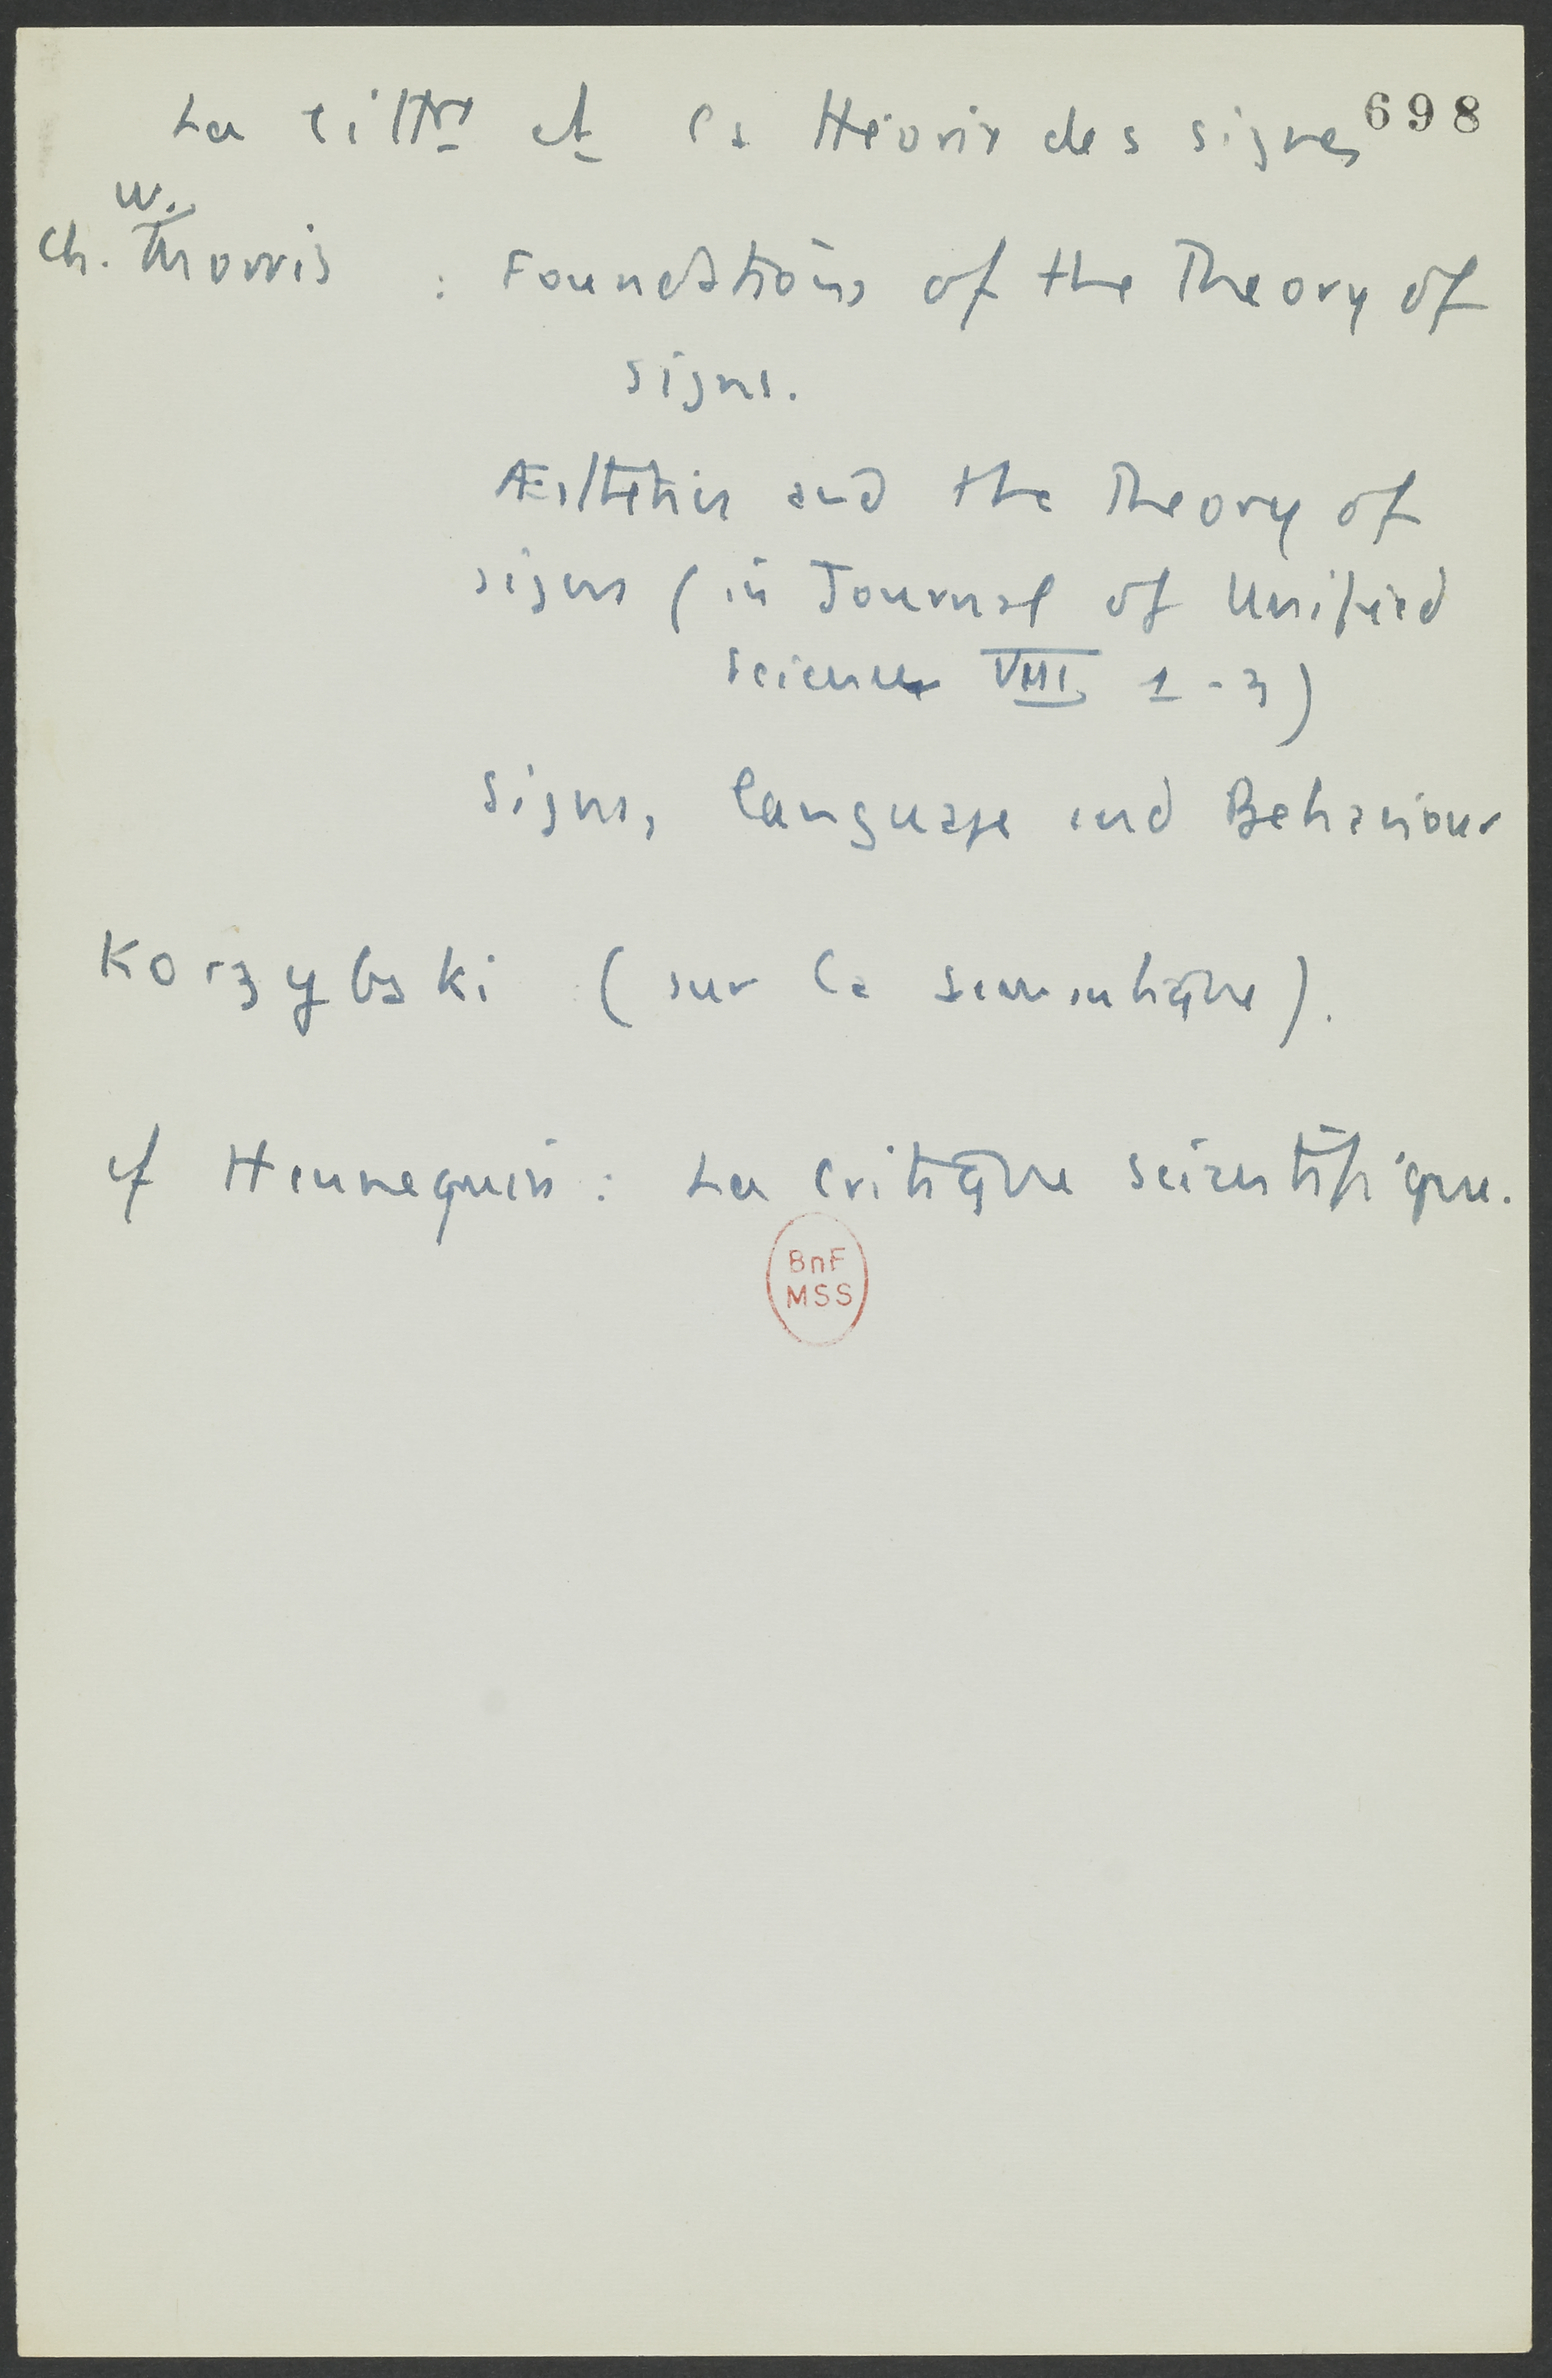 La littre et la théorie des signes 698
W.
Ch. Morris : Foundations of the Theory of
signs.
Æsthetics and the Theory of
signs (in Journal of Unified
science VIII 1-3)
Signs, language and Behaviour
Korzybski (sur la sémantique).
cf Hennequin : La critique scientifique.
BnF
MSS